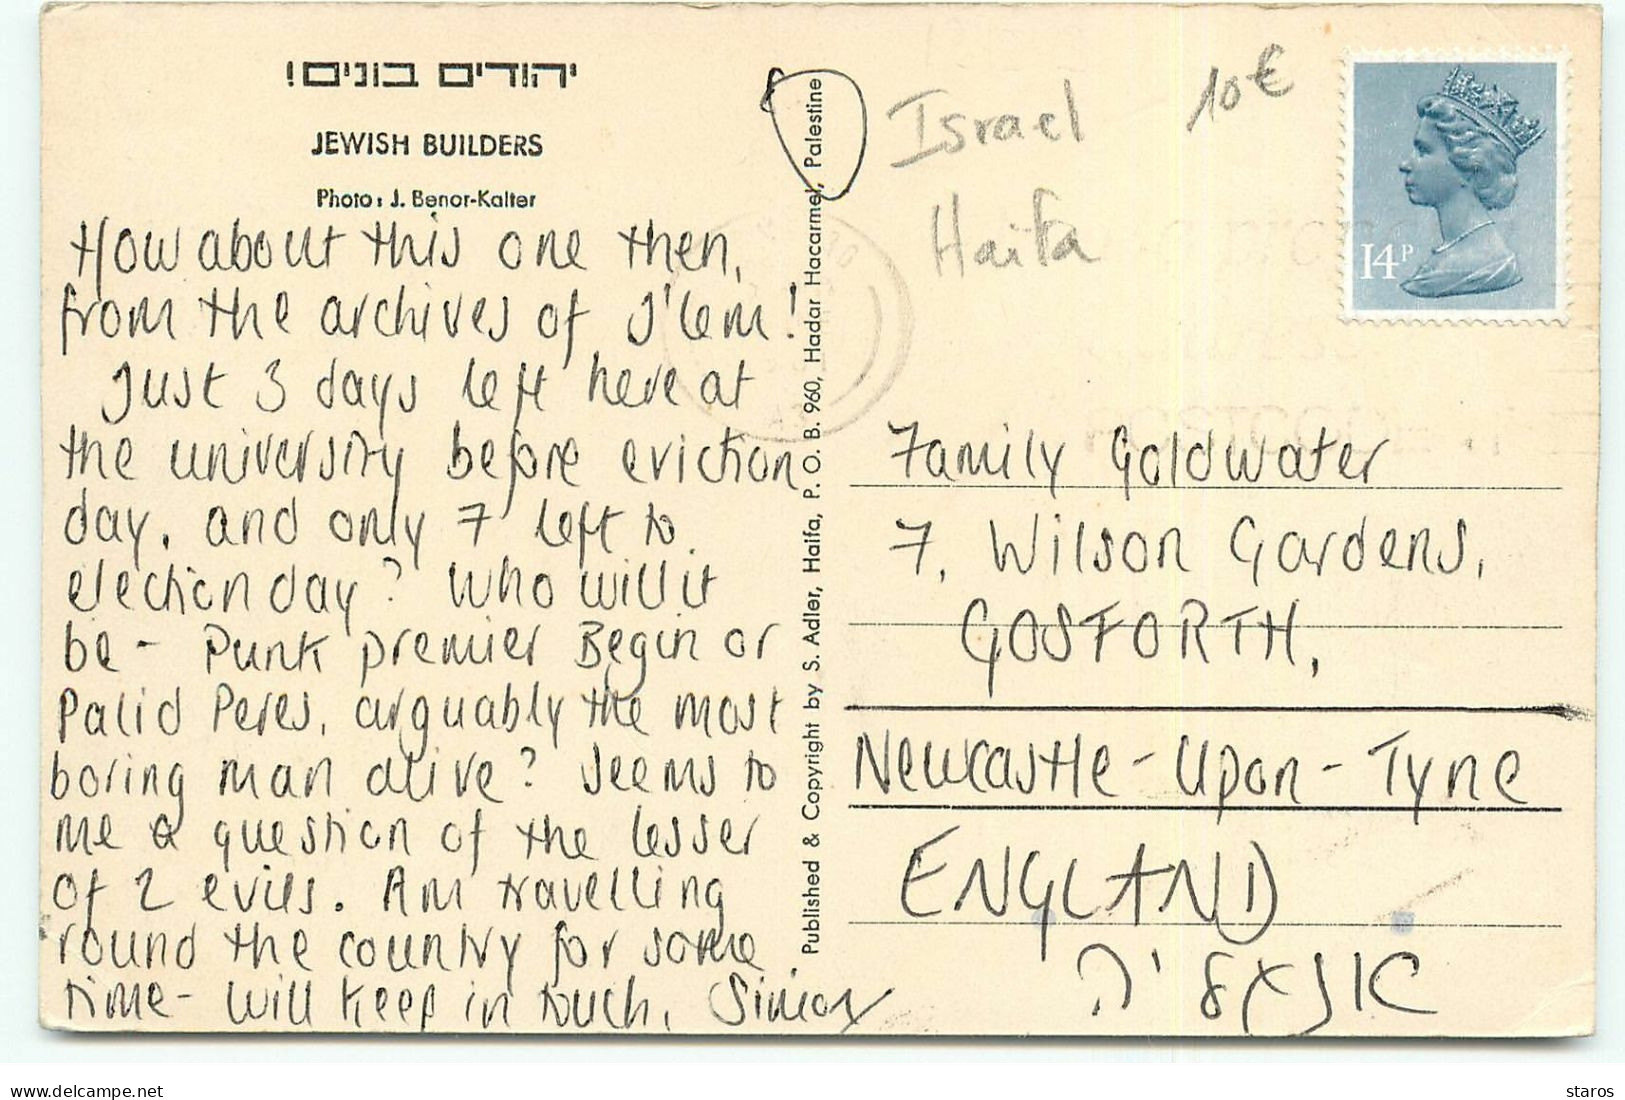 יהודים בונים!
JEWISH BUILDERS
Photo: J. Benor-Kalter
How about this one then,
from the archives of J'lem!
Just 3 days left here at
the university before eviction
day, and only 7 left to
election day? Who will it
be - Punk premier Begin or
Palid Peres, arguably the most
boring man alive? Seems to
me a question of the lesser
of 2 evils. Am travelling
round the country for some
time - will keep in touch, Simon
Published & Copyright by S. Adler, Haifa, P. O. B. 960, Hadar Hacarmel, Palestine
Israel
Haifa
10€
14P
Family Goldwater
7, Wilson Gardens,
GOSFORTH,
Newcastle-Upon-Tyne
ENGLAND
אנגליה
delcampe.net
staros